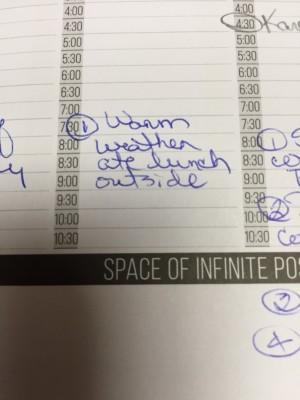 4:00
4:30
5:00
5:30
6:00
6:30
7:00
7:30 ① Warm
8:00 weather
8:30 ate lunch
9:00 outside
9:30
10:00
10:30
4:00
4:30
5:00
5:30
6:00
6:30
7:00
7:30
8:00 ①
8:30
9:00
9:30 ②
10:00
10:30
SPACE OF INFINITE POS
②
④